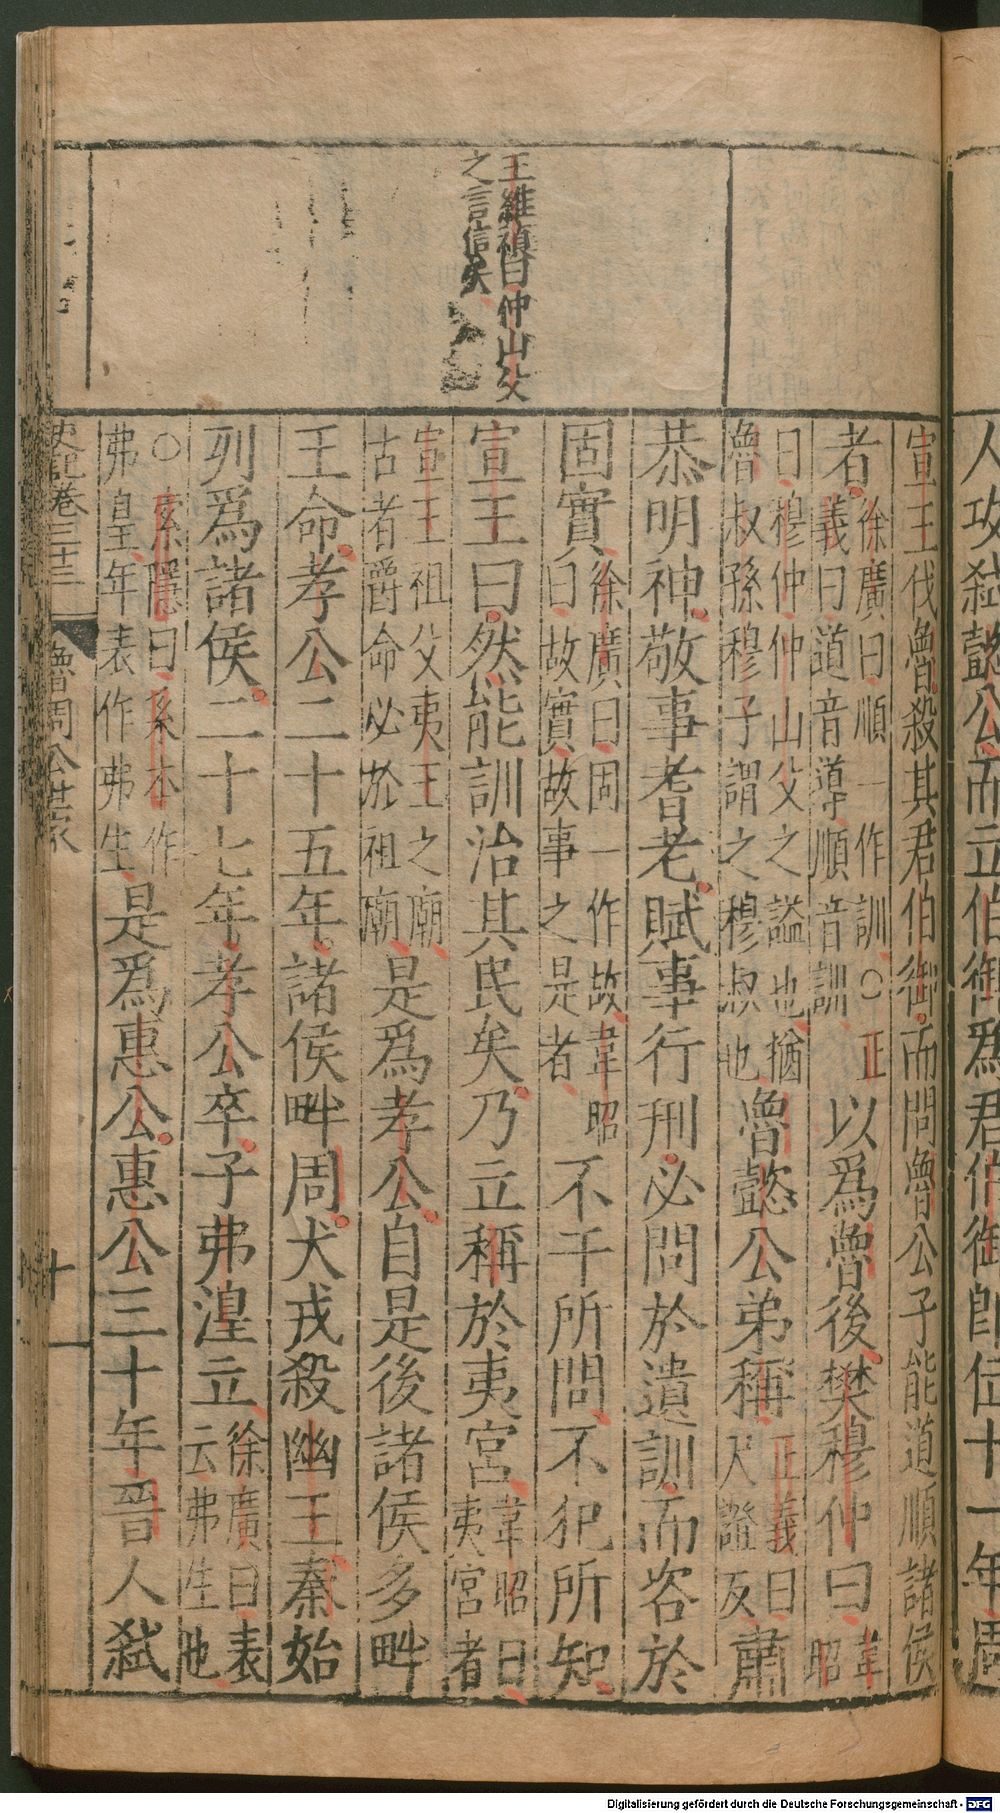 人攻弑懿公而立伯御爲君伯御卽位十一年周
王維禎曰仲山父
之言信矣
宣王伐魯殺其君伯御而問魯公子能道順諸侯
者徐廣曰順一作訓○正義曰道音導順音訓以爲魯後樊穆仲曰韋昭
曰穆仲仲山父之謚也猶魯叔孫穆子謂之穆叔也魯懿公弟稱正義曰尺證反肅
恭明神敬事耆老賦事行刑必問於遺訓而咨於
固實徐廣曰固一作故韋昭曰故實故事之是者不干所問不犯所知
宣王曰然能訓治其民矣乃立稱於夷宮韋昭曰夷宮者
宣王祖父夷王之廟古者爵命必於祖廟是爲孝公自是後諸侯多畔
王命孝公二十五年諸侯畔周犬戎殺幽王秦始
列爲諸侯二十七年孝公卒子弗湟立徐廣曰表云弗生也
○索隱曰系本作弗皇年表作弗生是爲惠公惠公三十年晉人弑
史記卷三十三 魯周公世家 十一
Digitalisierung gefördert durch die Deutsche Forschungsgemeinschaft - DFG